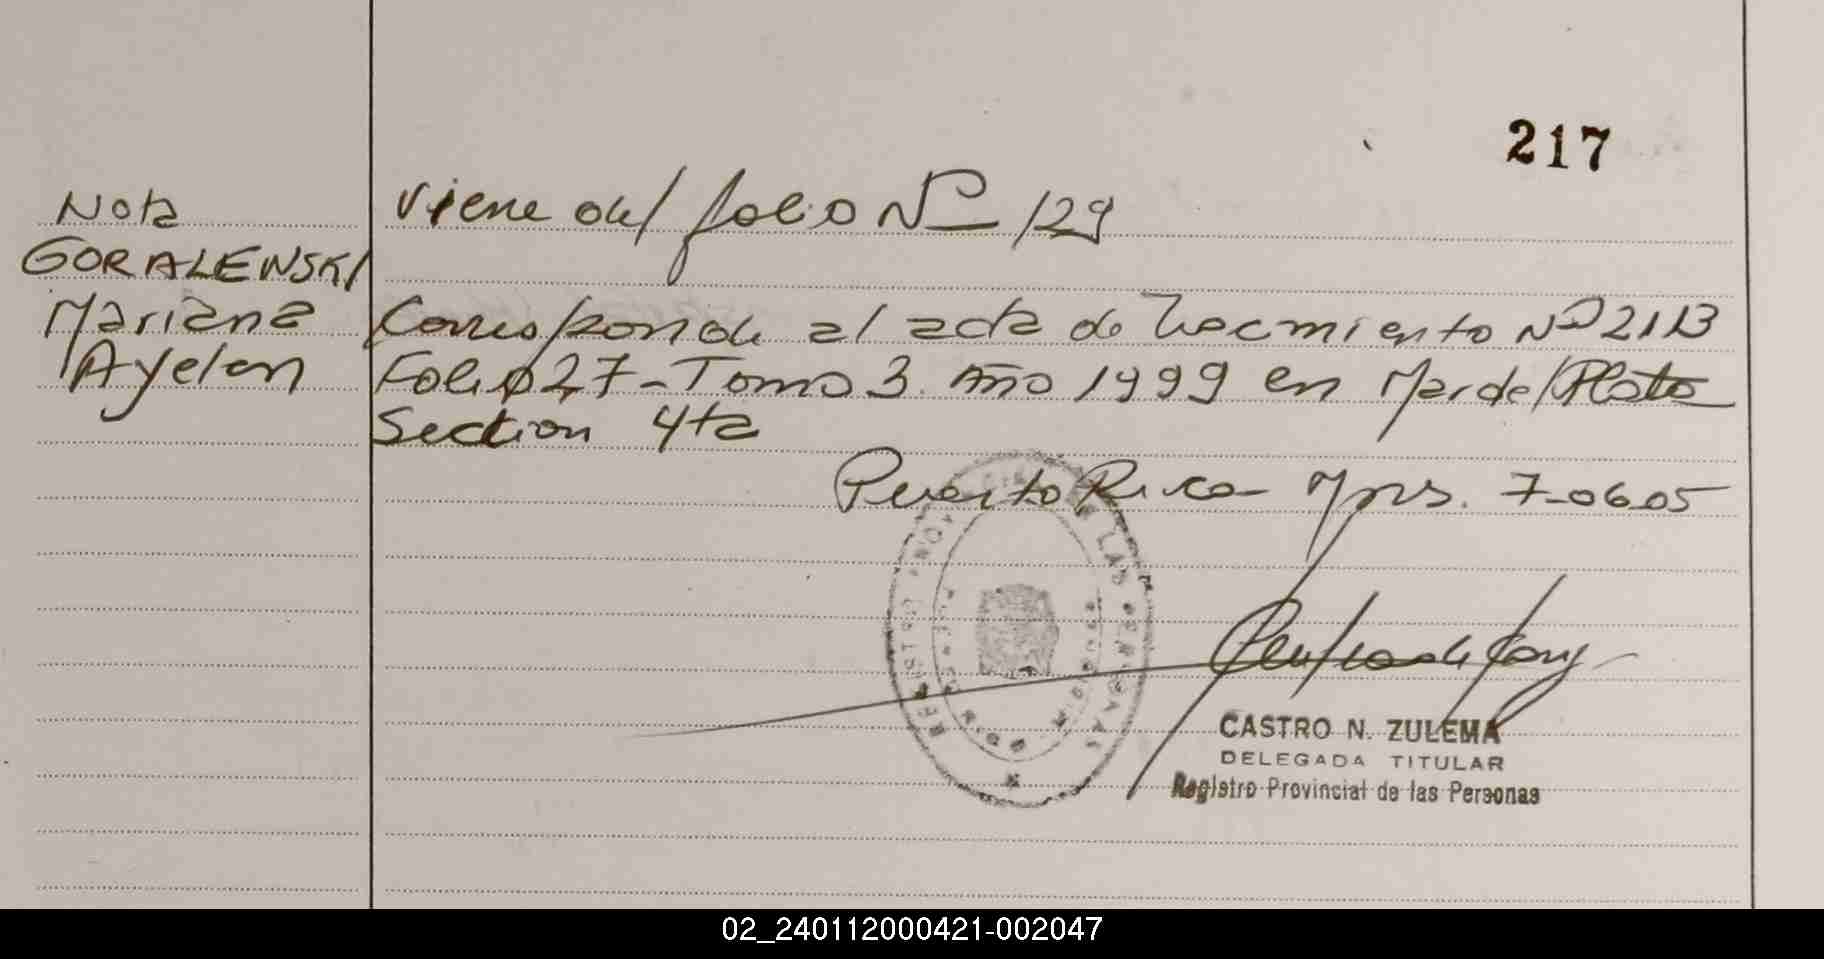 217
Nota
viene del folio Nº 129
GORALEWSKI
Mariana
Corresponde al acta de Nacimiento Nº 2113
Ayelen
Folio 27 - Tomo 3. Año 1999 en Mar del Plata
Section 4ta
Puerto Rico - Mns. 7-06-05
REGISTRO PROVINCIAL DE LAS PERSONAS
CASTRO N. ZULEMA
DELEGADA TITULAR
Registro Provincial de las Personas
02_240112000421-002047